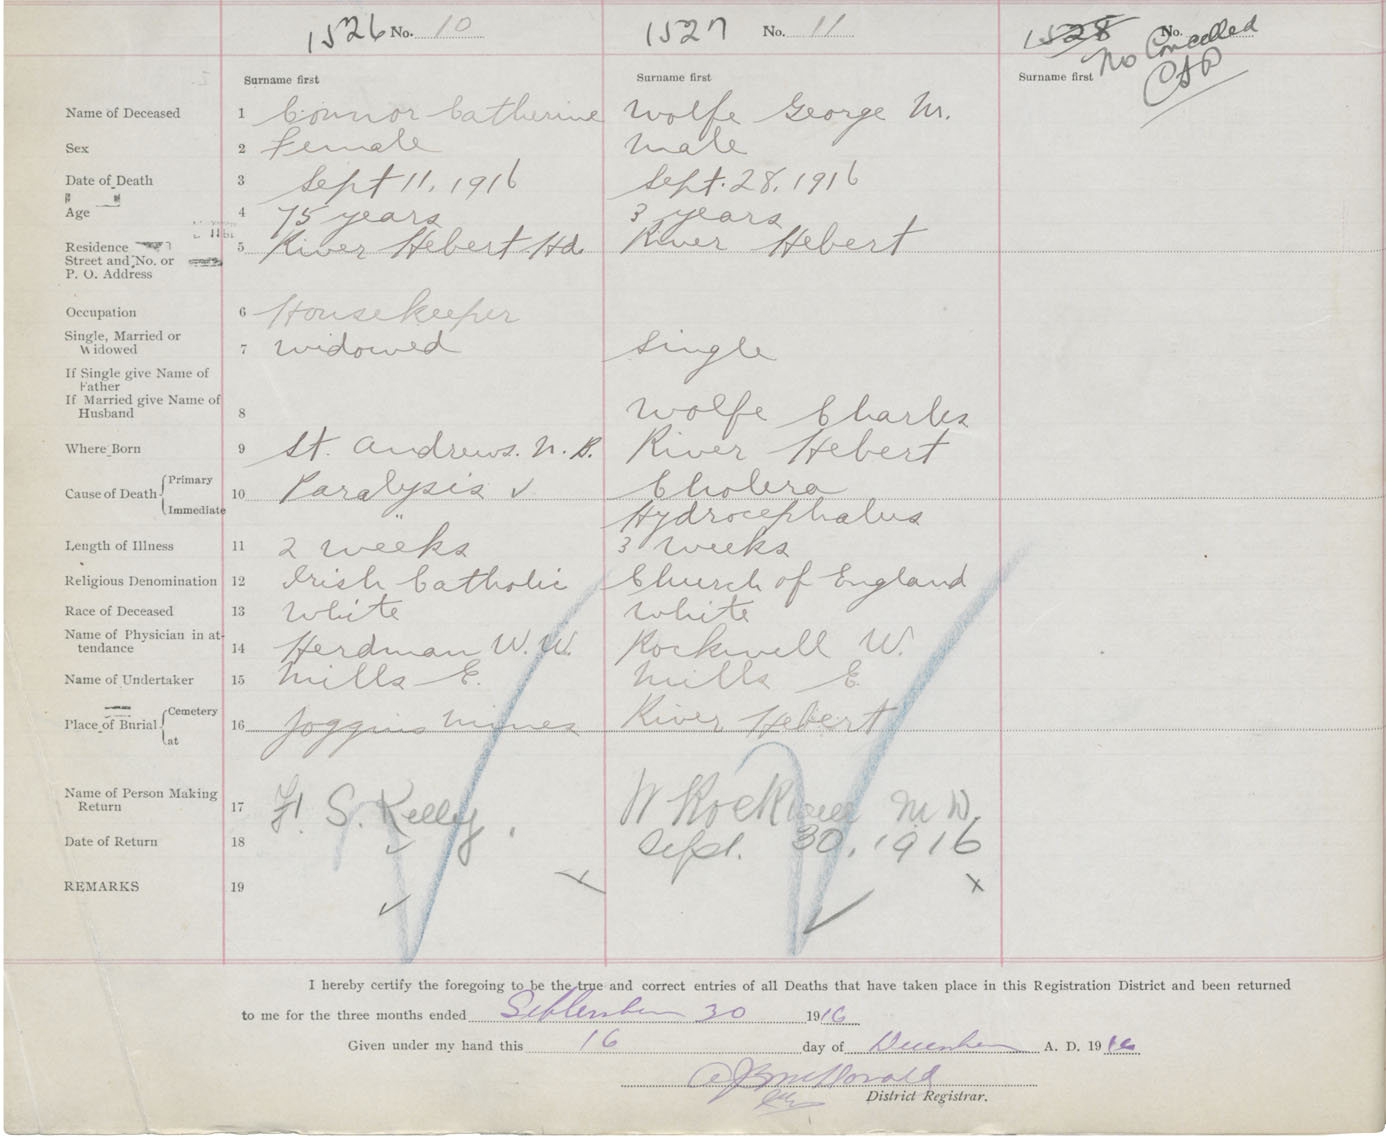 1526 No. 10 1527 No. 11 1528 No.
No Cancelled
Surname first Surname first Surname first
Name of Deceased 1 Connor Catherine Wolfe George M.
Sex 2 Female Male
Date of Death 3 Sept 11, 1916 Sept. 28, 1916
Age 4 75 years 3 years
Residence 5 River Hebert Hd River Hebert
Street and No. or
P. O. Address
Occupation 6 Housekeeper
Single, Married or
Widowed 7 Widowed Single
If Single give Name of
Father
If Married give Name of
Husband 8 Wolfe Charles
Where Born 9 St. Andrews. N. B. River Hebert
Cause of Death Primary 10 Paralysis Cholera
Immediate " Hydrocephalus
Length of Illness 11 2 weeks 3 weeks
Religious Denomination 12 Irish Catholic Church of England
Race of Deceased 13 White White
Name of Physician in at-
tendance 14 Herdman W. W. Rockwell W.
Name of Undertaker 15 Mills E. Mills E
Place of Burial Cemetery 16 Joggins Mines River Hebert
at
Name of Person Making
Return 17 S. Kelly W Rockwell M.D.
Date of Return 18 Sept. 30, 1916
REMARKS 19
I hereby certify the foregoing to be the true and correct entries of all Deaths that have taken place in this Registration District and been returned
to me for the three months ended September 30 1916
Given under my hand this 16 day of December A. D. 1916
McDonald
District Registrar.